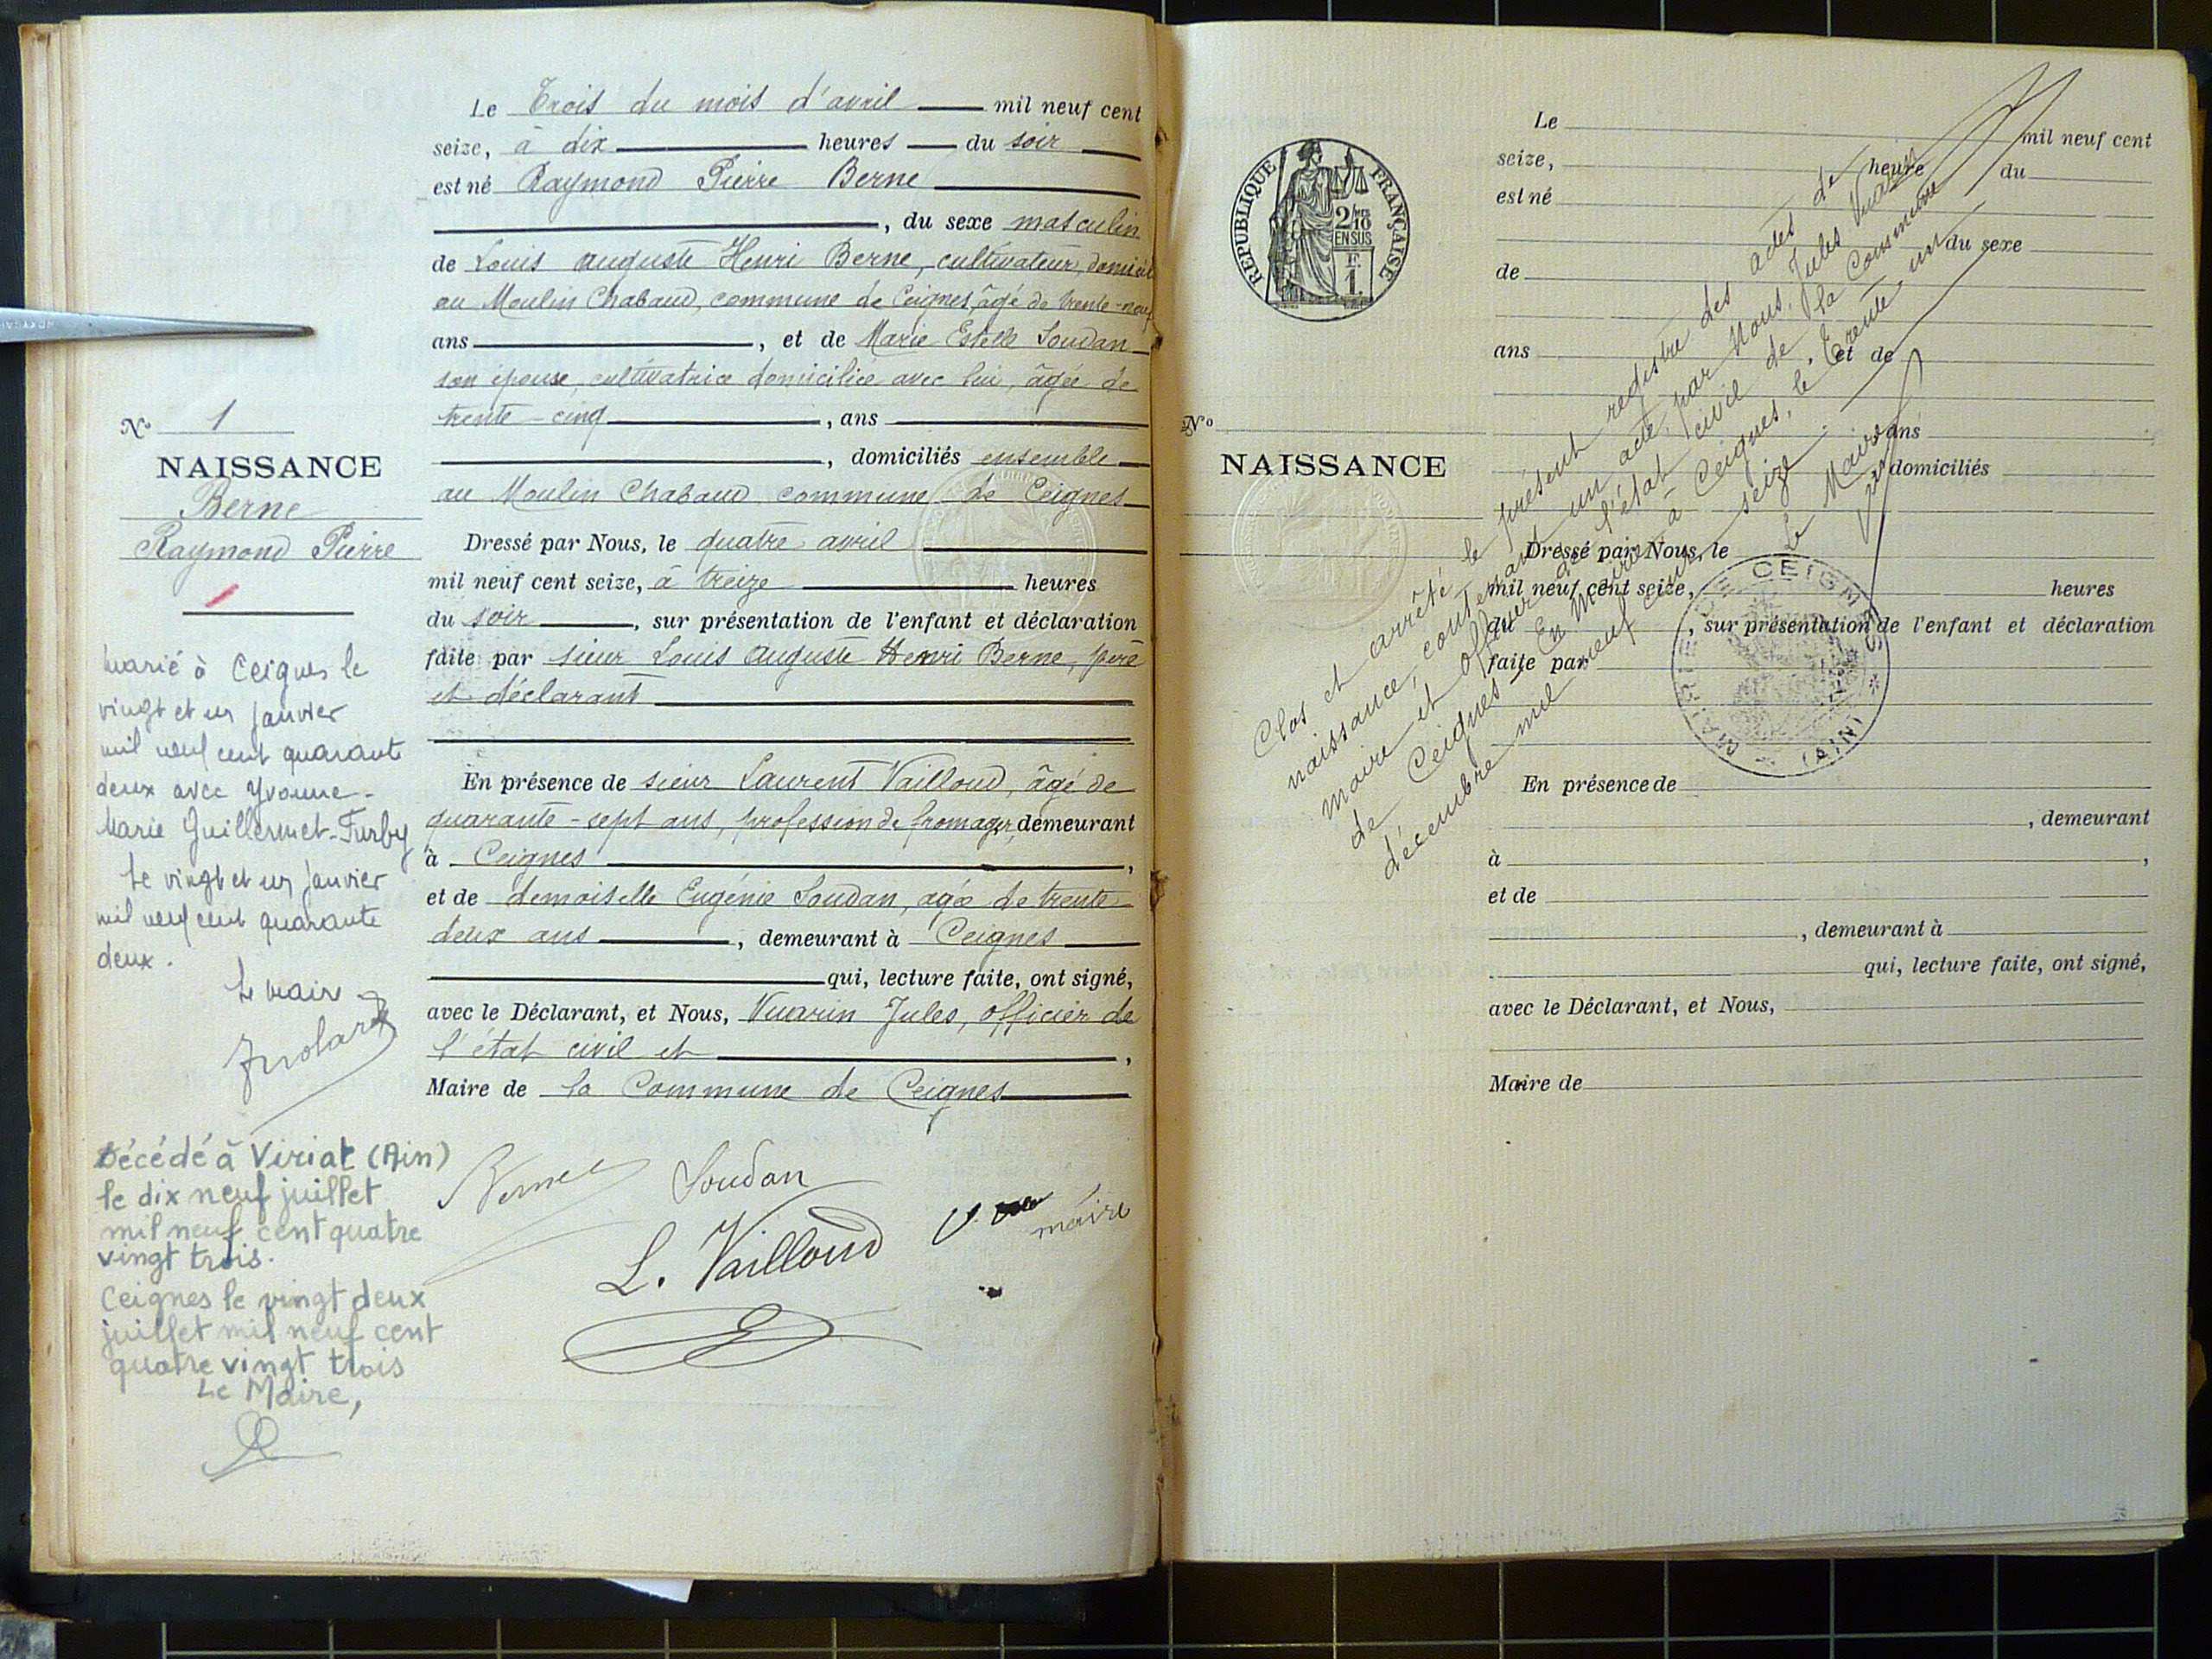 Le Trois du mois d'avril mil neuf cent
seize, à dix heures du soir
est né Raymond Pierre Berne
, du sexe masculin
de Louis auguste Henri Berne, cultivateur, domicil
au Moulin Chabaud, commune de Ceignes, âgé de trente-neuf
ans , et de Marie Estelle Soudan
son épouse, cultivatrice domiciliée avec lui, âgée de
trente-cinq , ans
, domiciliés ensemble
au Moulin Chabaud commune de Ceignes
Dressé par Nous, le quatre avril
mil neuf cent seize, à treize heures
du soir , sur présentation de l'enfant et déclaration
faite par sieur Louis Auguste Henri Berne, père
et déclarant
En présence de sieur Laurent Vailloud, âgé de
quarante-sept ans, profession de fromager, demeurant
à Ceignes ,
et de demoiselle Eugénie Soudan, agée de trente
deux ans , demeurant à Ceignes
qui, lecture faite, ont signé,
avec le Déclarant, et Nous, Vuarin Jules, officier de
l'état civil et ,
Maire de la Commune de Ceignes
Berne Soudan
L. Vailloud
maire
No 1
NAISSANCE
Berne
Raymond Pierre
Marié à Ceignes le
vingt et un janvier
mil neuf cent quarante
deux avec Yvonne-
Marie Guillermet-Furby
Le vingt et un janvier
mil neuf cent quarante
deux.
Le maire
Décédé à Viriat (Ain)
le dix neuf juillet
mil neuf cent quatre
vingt trois.
Ceignes le vingt deux
juillet mil neuf cent
quatre vingt trois
Le Maire,
REPUBLIQUE FRANÇAISE
2/10
EN SUS
F.
1
No
NAISSANCE
Le mil neuf cent
seize, heure du
est né
du sexe
de
ans et de
ans
domiciliés
Dressé par Nous, le
mil neuf cent seize, heures
du , sur présentation de l'enfant et déclaration
faite par
En présence de
, demeurant
à ,
et de
, demeurant à
qui, lecture faite, ont signé,
avec le Déclarant, et Nous,
Maire de
Clos et arrêté le présent registre des actes de
naissance, contenant un acte, par Nous, Jules Vuarin
maire et officier de l'état civil de la Commune
de Ceignes - En Mairie à Ceignes, le trente un
décembre mil neuf cent seize.
Le Maire
MAIRIE DE CEIGNES
(AIN)